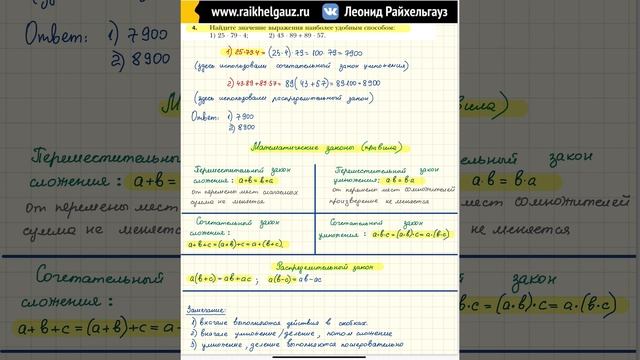 www.raikhelgauz.ru Леонид Райхельгауз
4. Найдите значение выражения наиболее удобным способом:
1) 25 · 79 · 4; 2) 43 · 89 + 89 · 57.
1) 25·79·4 = (25·4)·79 = 100·79 = 7900
(здесь использовали сочетательный закон умножения)
2) 43·89+89·57 = 89(43+57) = 89·100 = 8900
(здесь использовали распределительный закон)
Ответ: 1) 7900
2) 8900
Математические законы (правила)
Переместительный закон
сложения: a+в = в+a
от перемены мест слагаемых
сумма не меняется
Переместительный закон
умножения: a·в = в·a
от перемены мест сомножителей
произведение не меняется
Сочетательный закон
сложения:
a+в+c = (a+в)+c = a+(в+c)
Сочетательный закон
умножения: a·в·c = (a·в)·c = a·(в·c)
Распределительный закон
a(в+c) = aв+ac ; a(в-c) = aв-ac
Замечание:
1) вначале выполняются действия в скобках.
2) вначале умножение/деление, потом сложение
3) умножение, деление выполняются поочередно
Ответ: 1) 7900
2) 8900
Переместительн
сложения: a+в =
от перемены мест
сумма не меняет
Сочетательный
сложения:
a+в+c = (a+в)+c = a
вила)
закон
a·в = в·a
мест сомножителей
не меняется
закон
в·c = (a·в)·c = a·(в·c)